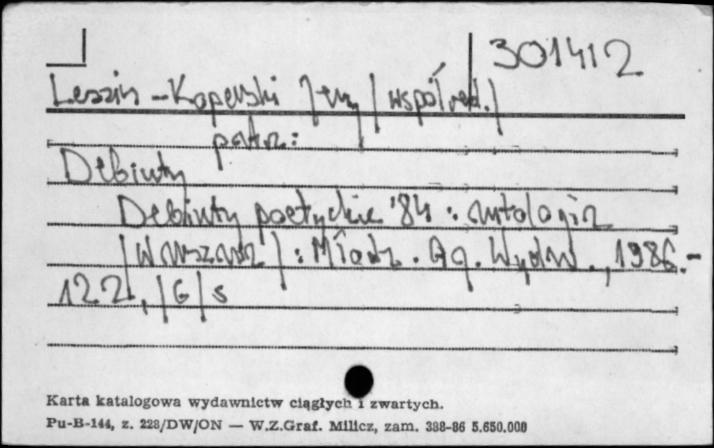 301412
Leszin-Koperski /Jerzy/ /współred./
patrz:
Debiuty
Debiuty poetyckie '84 : antologia
/Warszawa/ : Młodz. Ag. Wydaw., 1986.-
122, /6/ s
Karta katalogowa wydawnictw ciągłych i zwartych.
Pu-B-144, z. 228/DW/ON — W.Z.Graf. Milicz, zam. 388-86 5.650.000